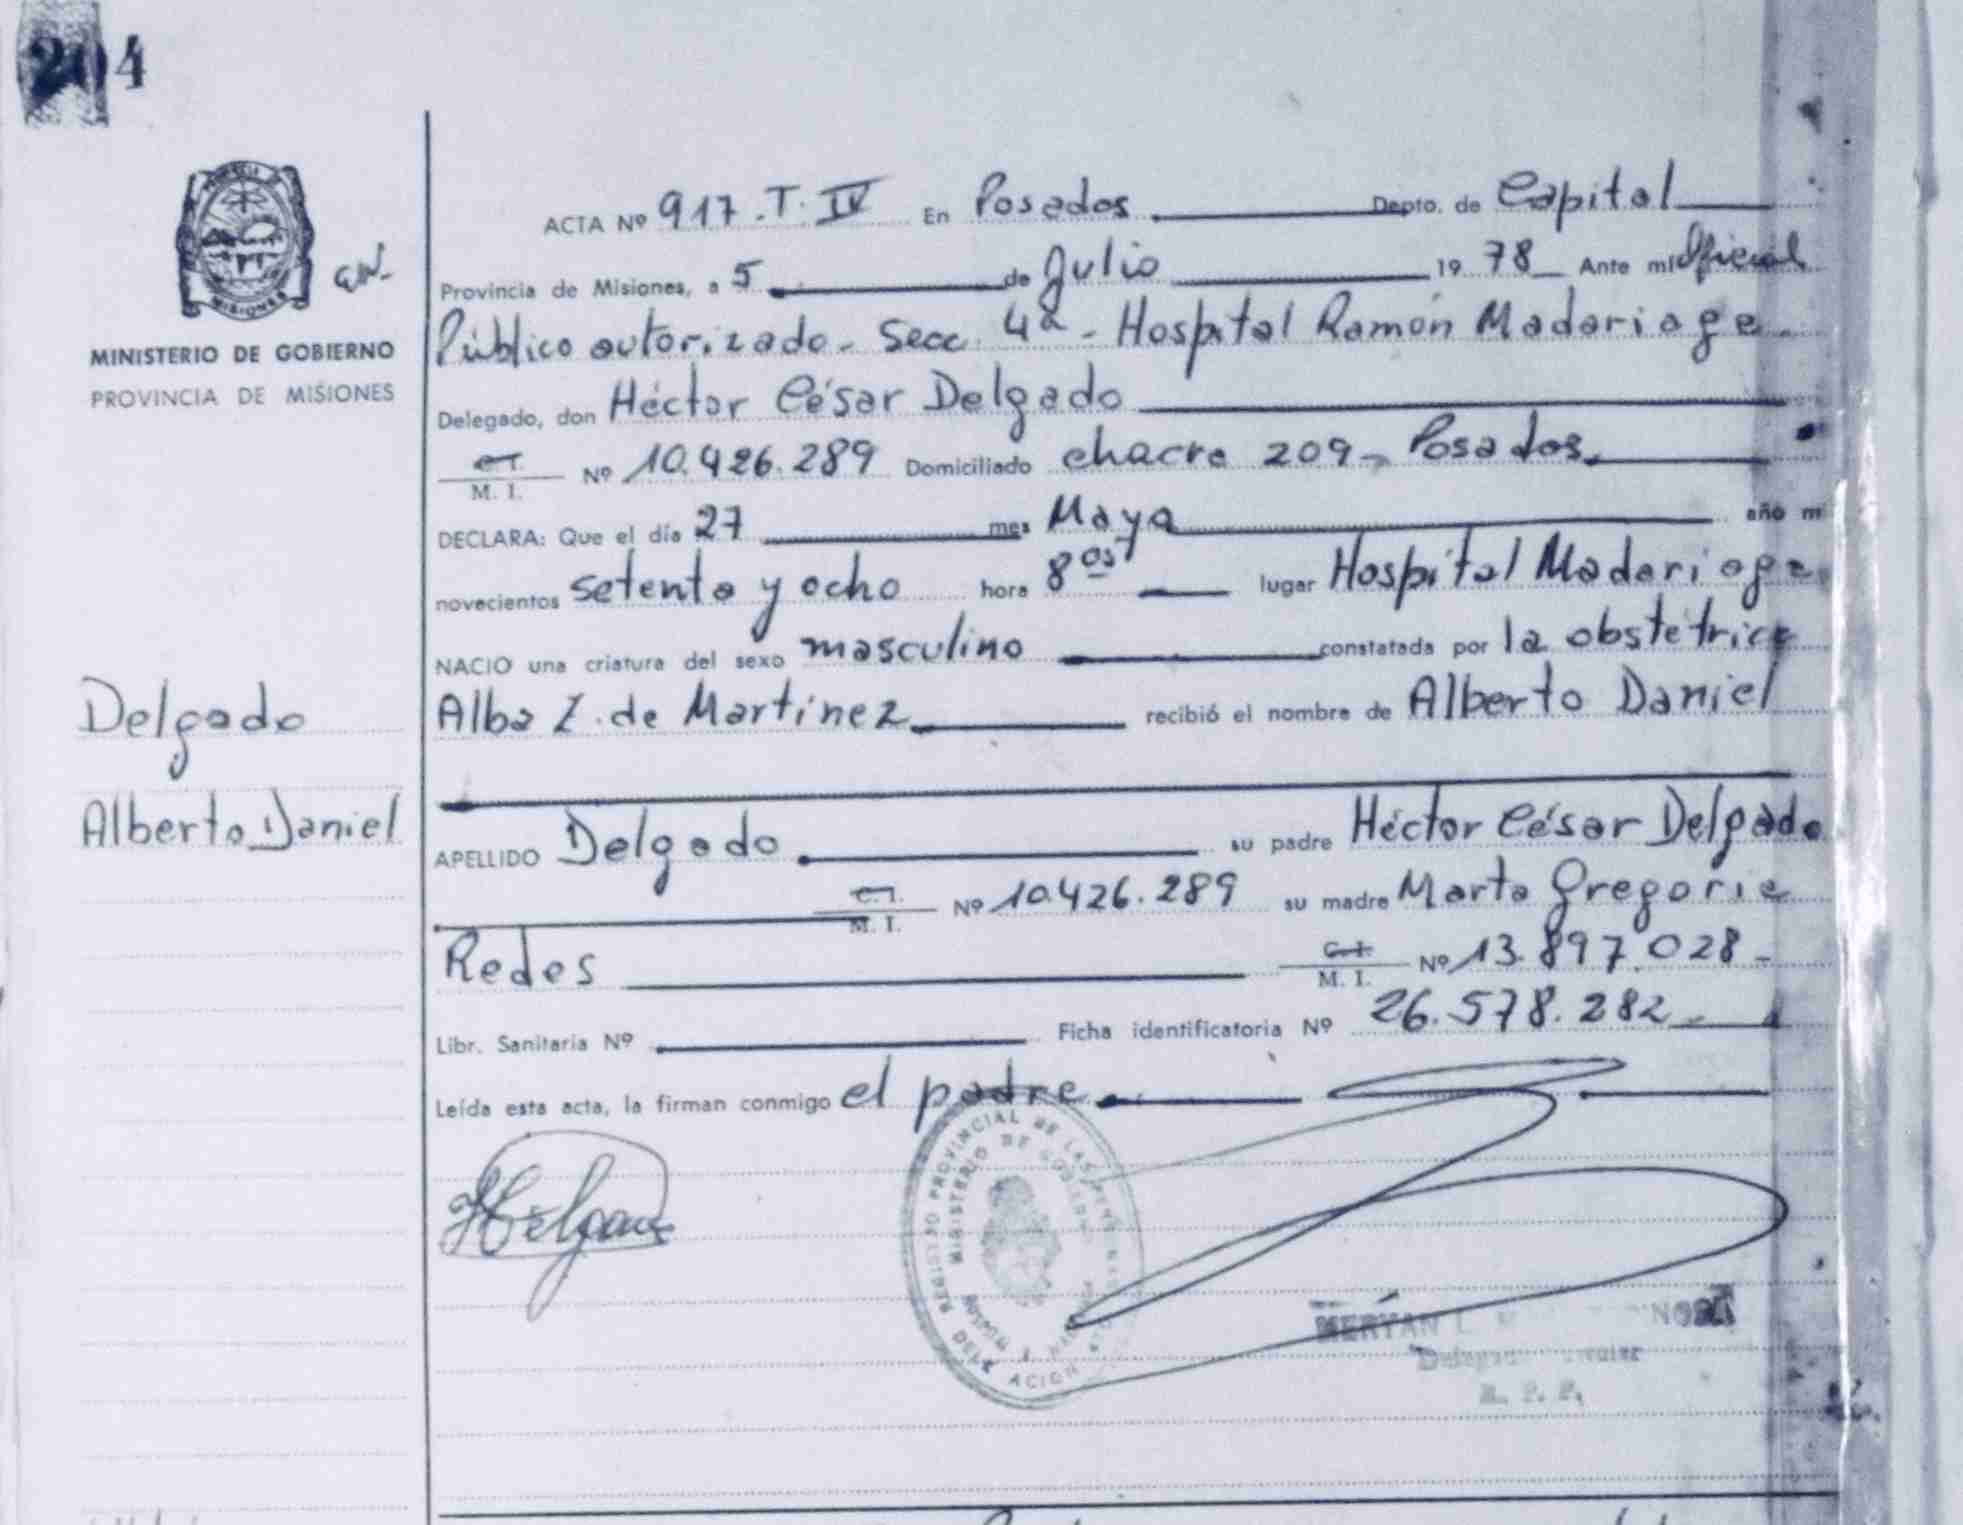 204
MINISTERIO DE GOBIERNO
PROVINCIA DE MISIONES
Delgado
Alberto Daniel
ACTA Nº 917.T.IV En Posadas Depto. de Capital
Provincia de Misiones, a 5 de Julio 19 78 Ante mi Oficial
Público autorizado - Secc. 4ª - Hospital Ramón Madariaga
Delegado, don Héctor César Delgado
C.I. M. I. Nº 10.426.289 Domiciliado chacra 209 - Posadas
DECLARA: Que el día 27 mes Mayo año mi
novecientos setenta y ocho hora 8 lugar Hospital Madariaga
NACIO una criatura del sexo masculino constatada por la obstétrica
Alba Z. de Martínez recibió el nombre de Alberto Daniel
APELLIDO Delgado su padre Héctor César Delgado
C.I. M. I. Nº 10.426.289 su madre Marta Gregoria
Redes C.I. M. I. Nº 13.897.028 -
Libr. Sanitaria Nº Ficha identificatoria Nº 26.578.282 -
Leída esta acta, la firman conmigo el padre
REGISTRO PROVINCIAL DE LAS PERSONAS
MINISTERIO DE GOBIERNO
MERYAN L.
R. P. P.